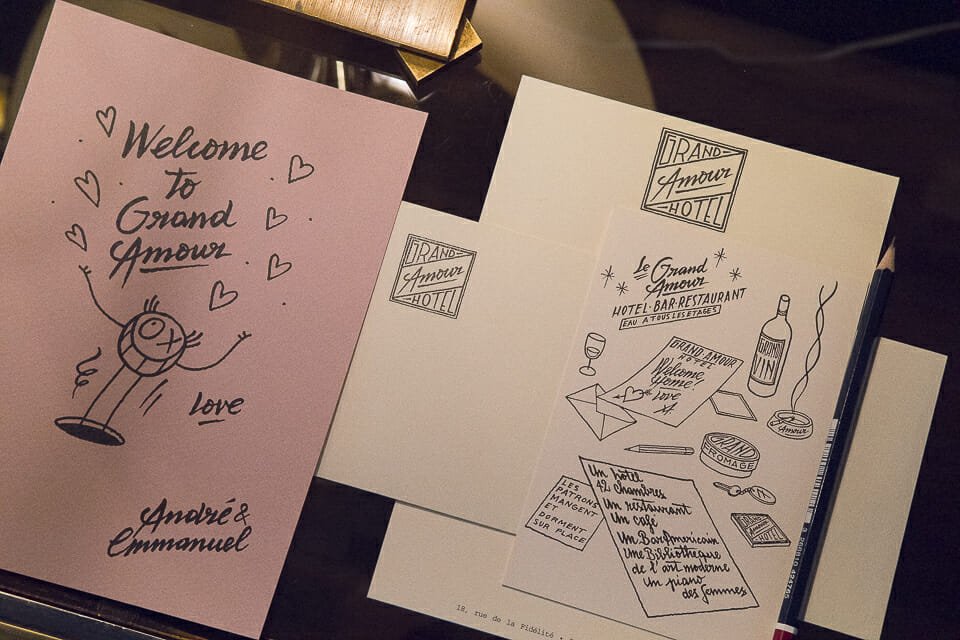 Welcome
to
Grand
Amour
Love
André &
Emmanuel
GRAND
Amour
HOTEL
GRAND
Amour
HOTEL
Le Grand
Amour
HOTEL·BAR·RESTAURANT
EAU A TOUS LES ETAGES
GRAND AMOUR
HOTEL
Welcome
Home!
Love
A
GRAND
VIN
Amour
GRAND
FROMAGE
LES
PATRONS
MANGENT
ET
DORMENT
SUR PLACE
Un hôtel
42 chambres
Un restaurant
Un café
Un Bar Americain
Une Bibliothèque
de l'art moderne
un piano
des femmes
GRAND
Amour
HOTEL
18, rue de la Fidélité